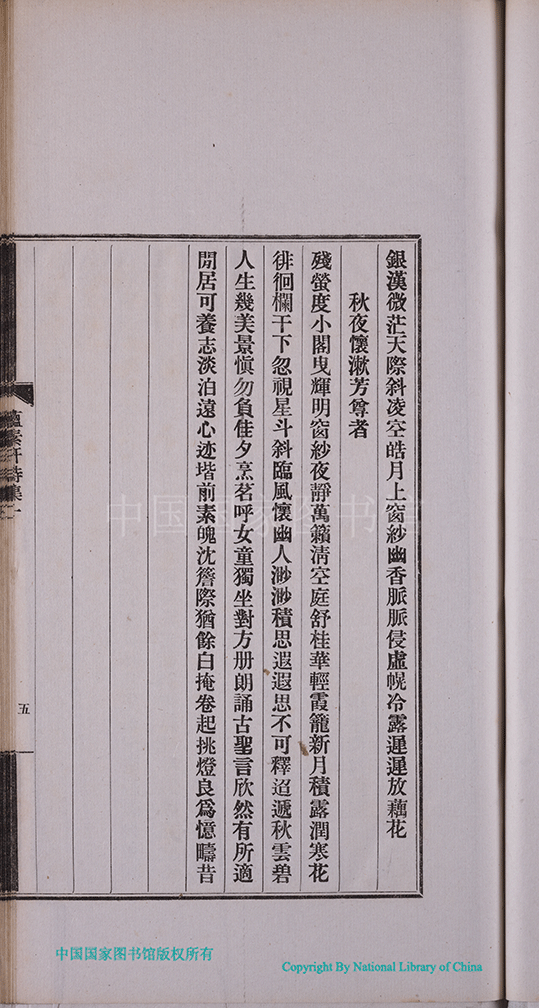 銀漢微茫天際斜凌空皓月上窗紗幽香脈脈侵虛幌冷露遲遲放藕花
秋夜懷漱芳尊者
殘螢度小閣曳輝明窗紗夜靜萬籟淸空庭舒桂華輕霞籠新月積露潤寒花
徘徊欄干下忽視星斗斜臨風懷幽人渺渺積思遐遐思不可釋迢遞秋雲碧
人生幾美景愼勿負佳夕烹茗呼女童獨坐對方册朗誦古聖言欣然有所適
閒居可養志淡泊遠心迹堦前素魄沈簷際猶餘白掩卷起挑燈良爲憶疇昔
蘊素軒詩集一
五
中国国家图书馆
中国国家图书馆版权所有
Copyright By National Library of China